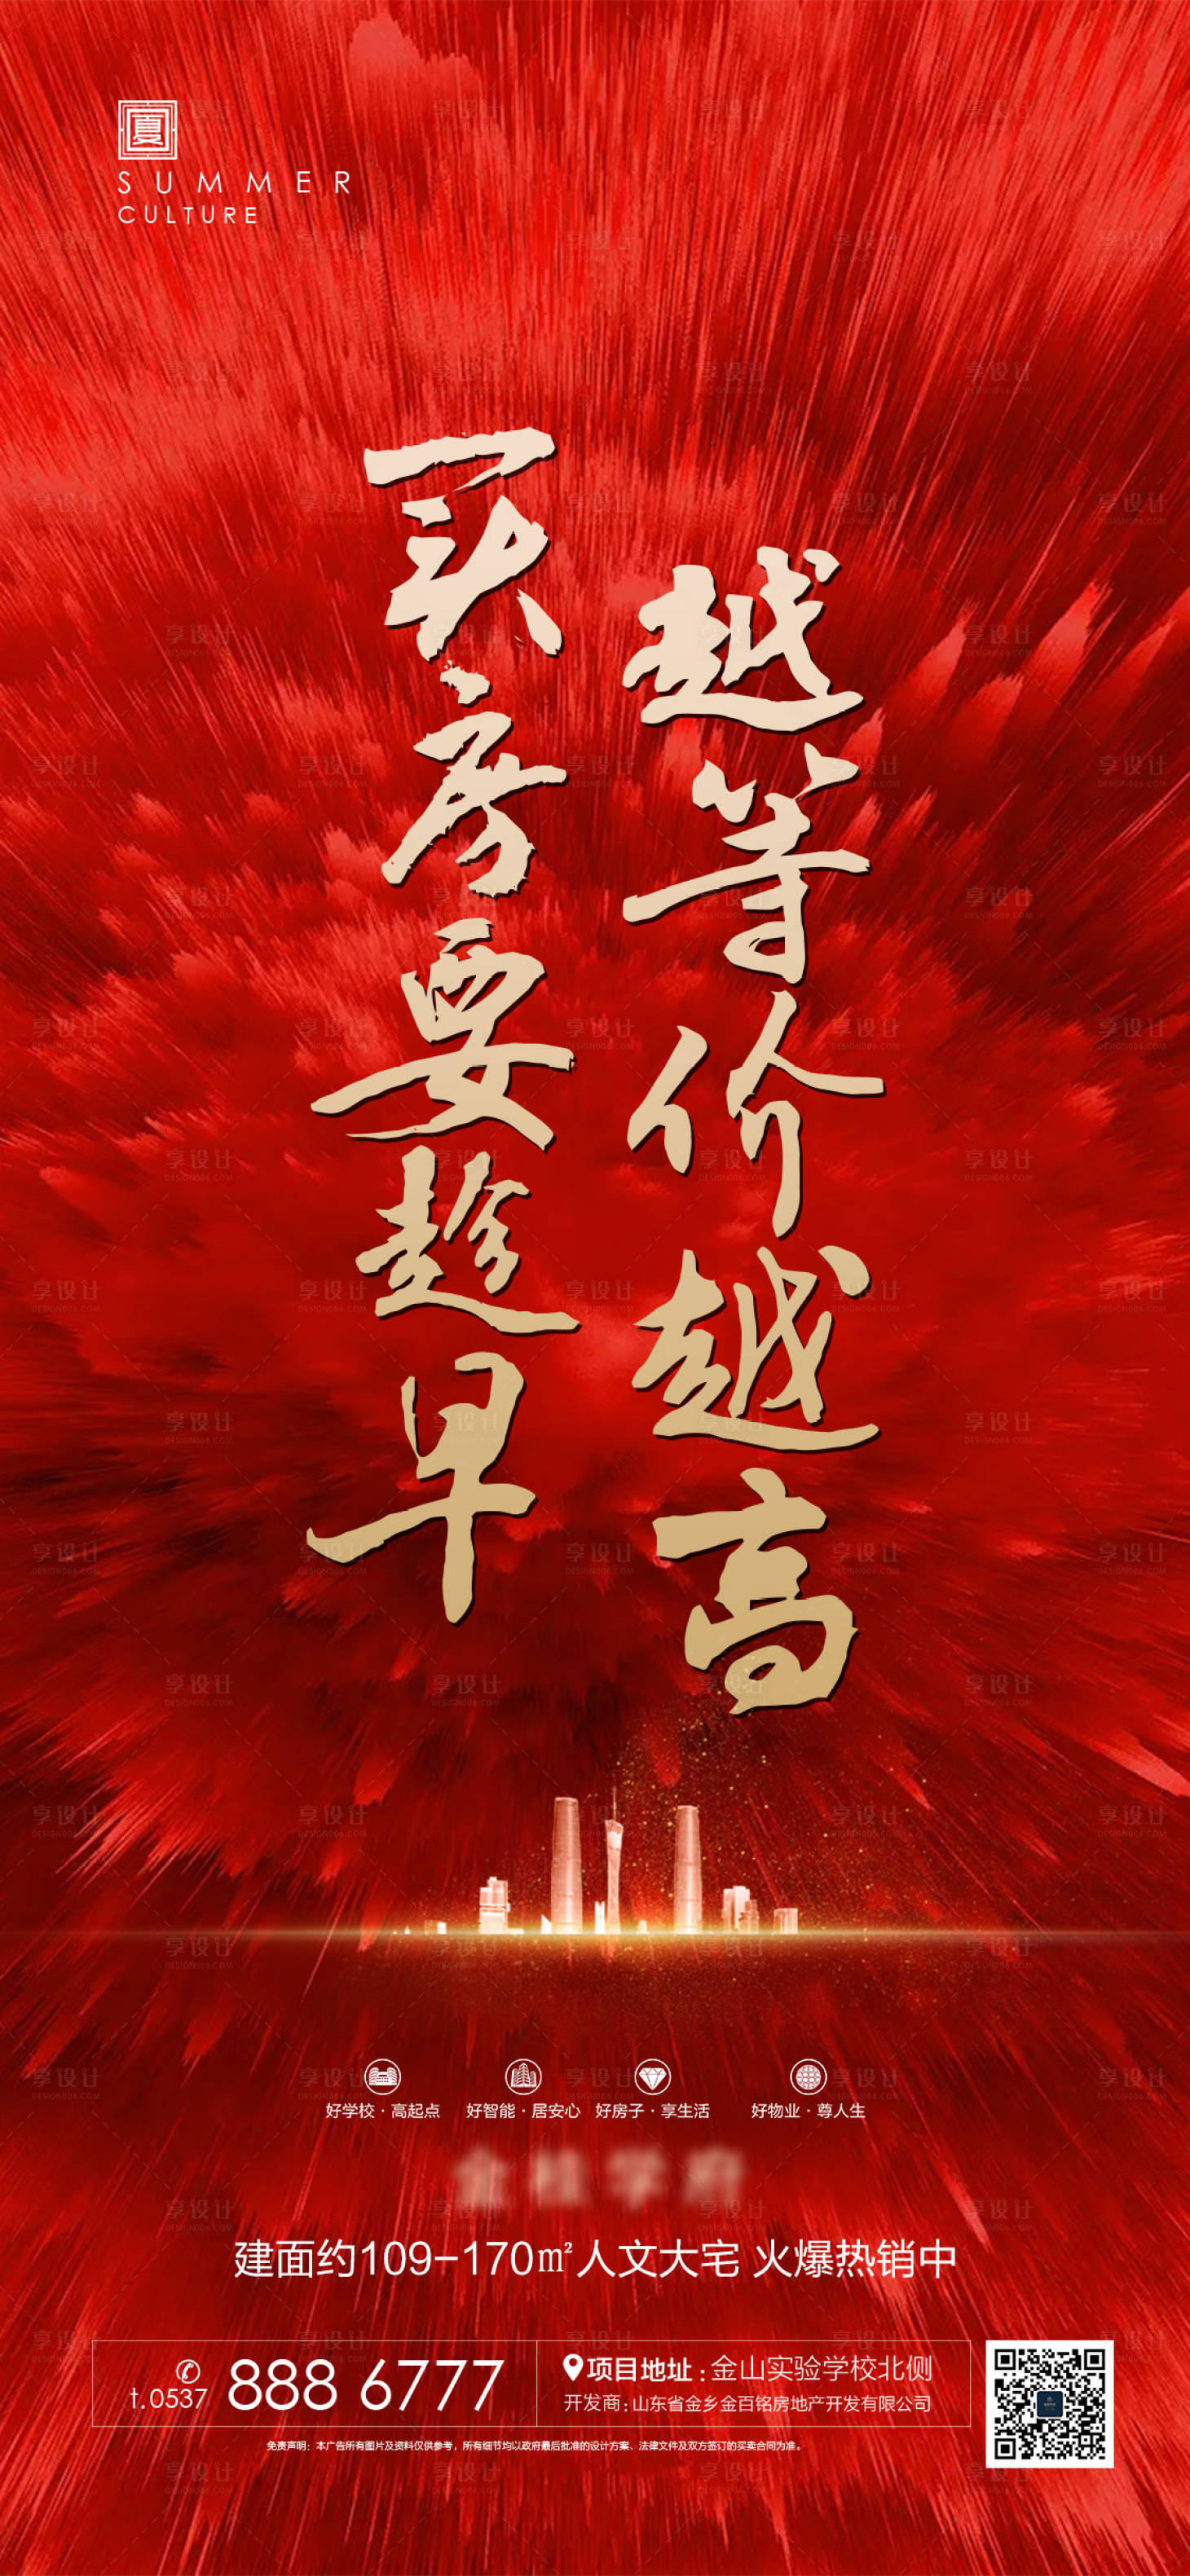 夏
SUMMER
CULTURE
买房要趁早
越等价越高
好学校·高起点
好智能·居安心
好房子·享生活
好物业·尊人生
建面约109-170㎡人文大宅 火爆热销中
t.0537 888 6777
项目地址：金山实验学校北侧
开发商：山东省金乡金百铭房地产开发有限公司
免责声明：本广告所有图片及资料仅供参考，所有细节均以政府最后批准的设计方案、法律文件及双方签订的买卖合同为准。
享设计
DESIGN006.COM